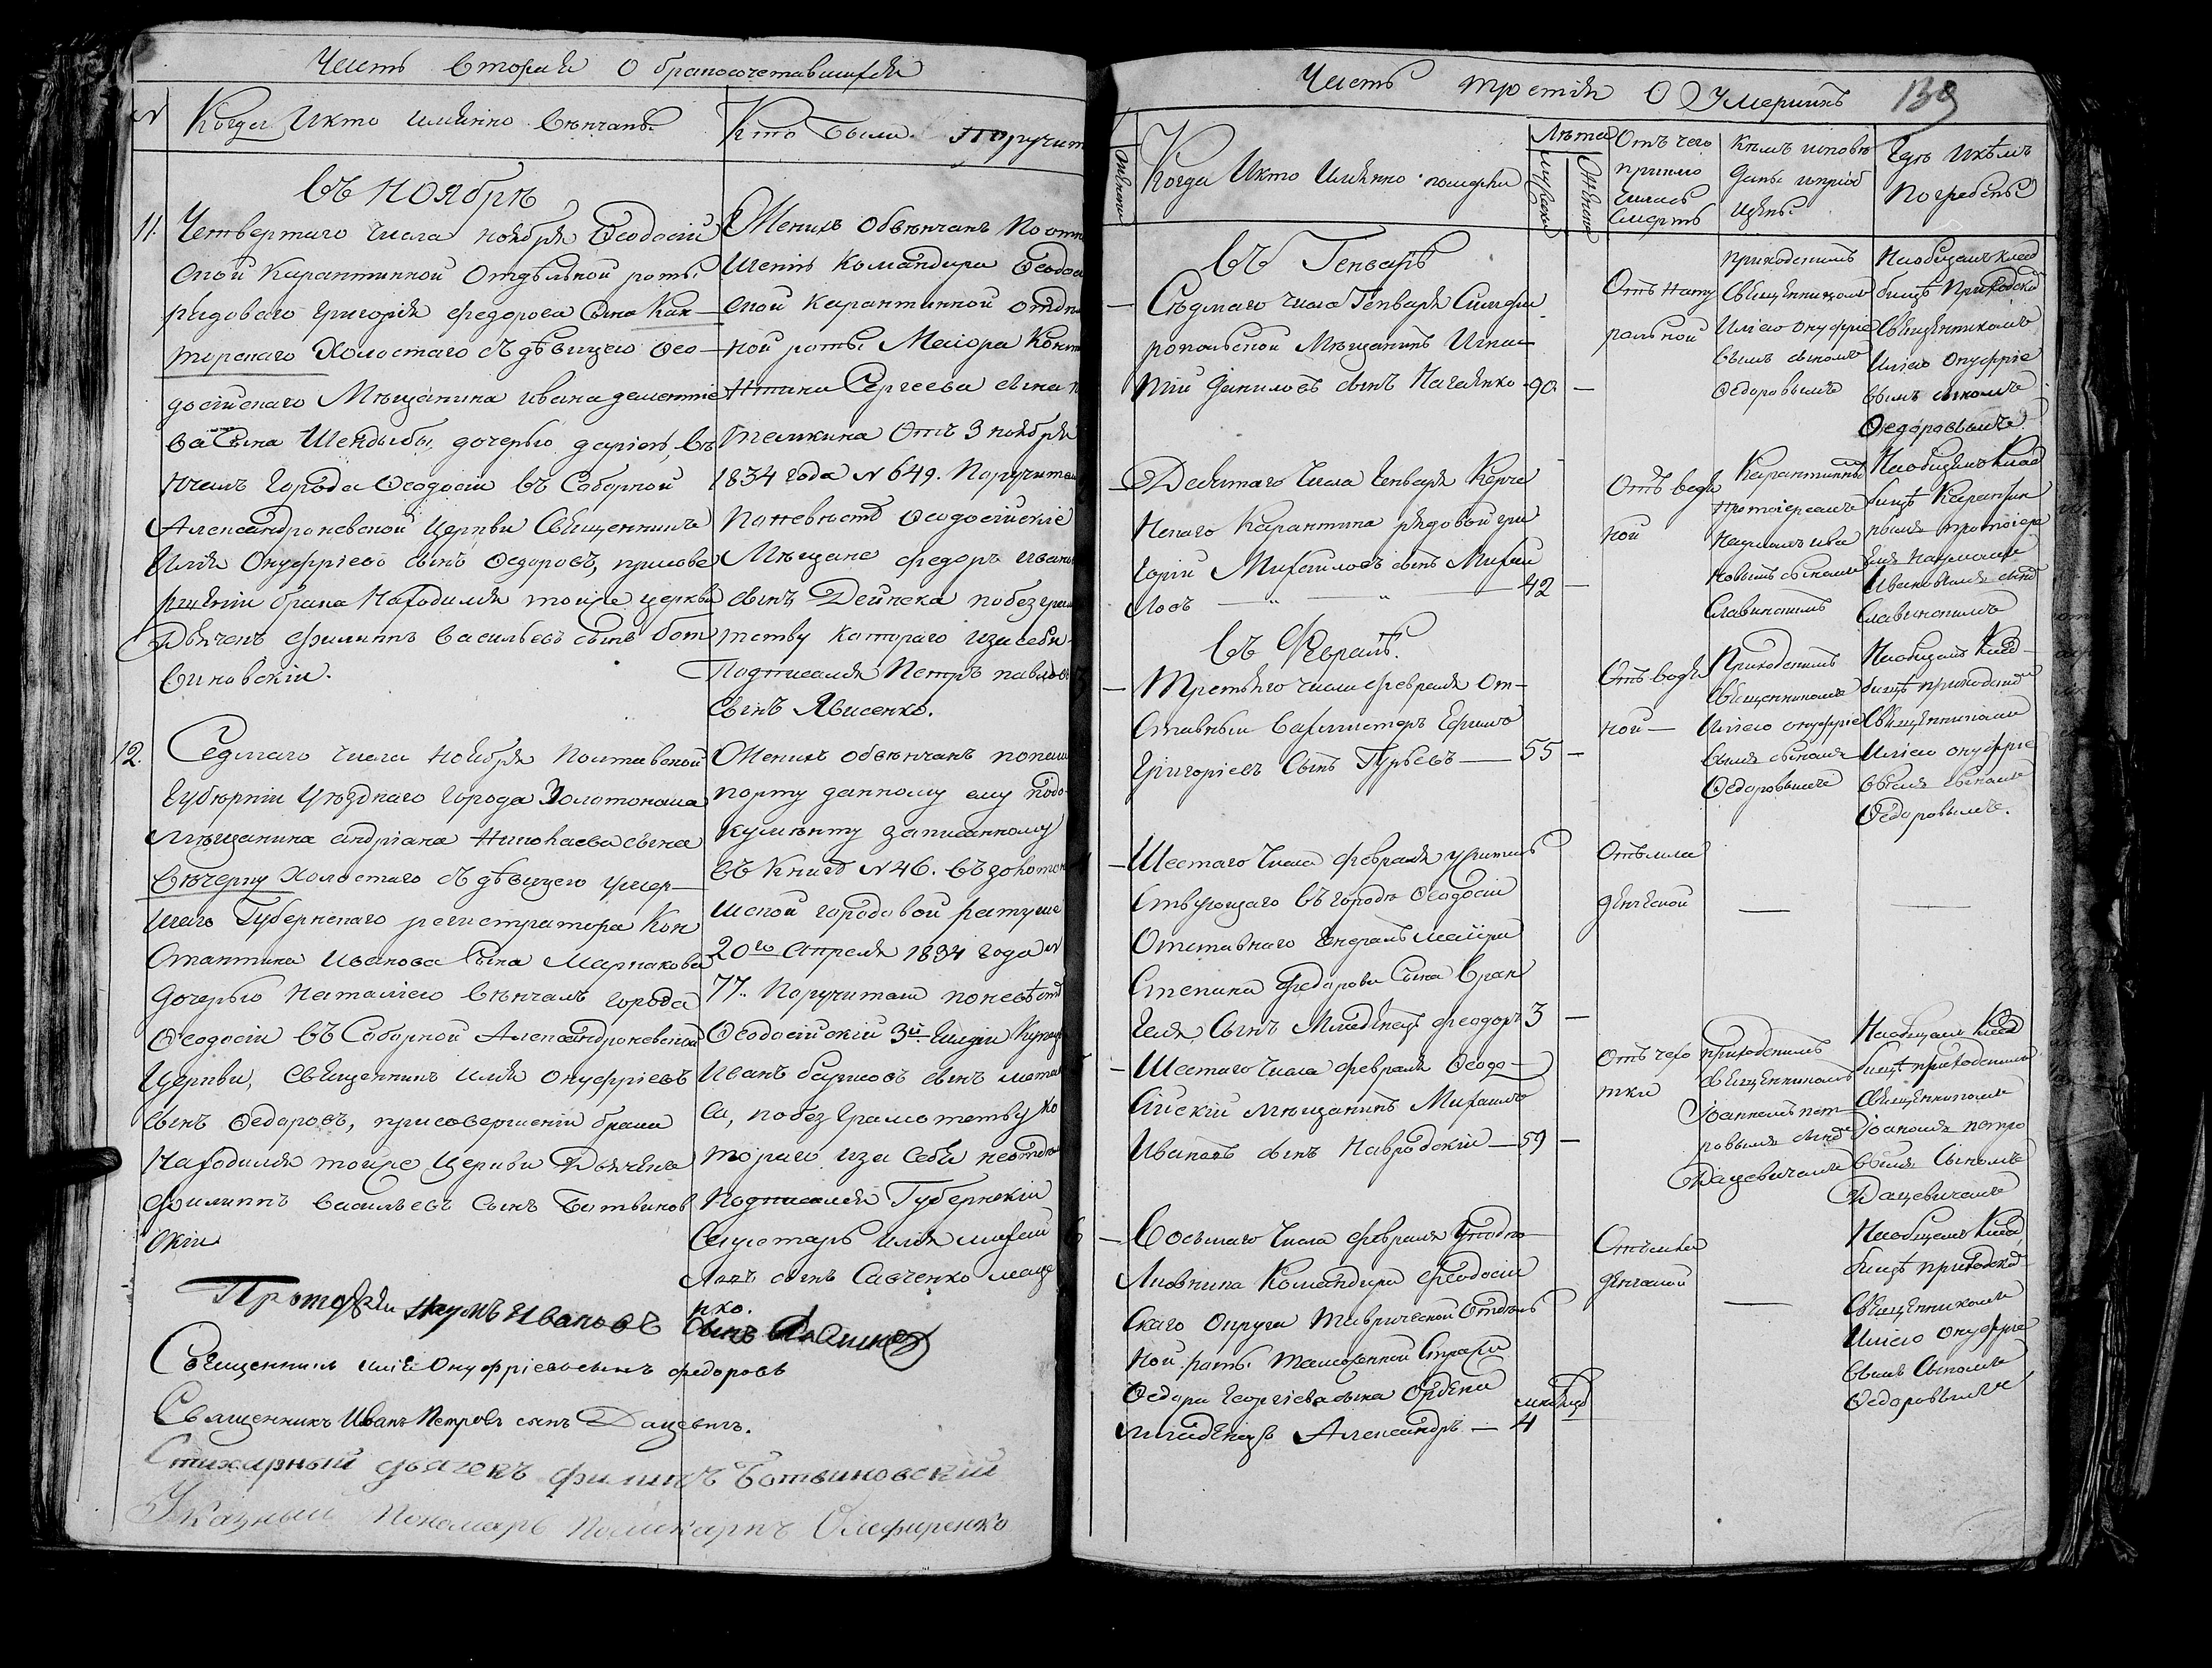 Часть вторая о бракосочетавшихся
N
Когда и кто именно венчаны
Кто были поручит
въ Ноябрѣ
11. Четвертаго числа ноября Ѳеодосій
ской Карантинной отдѣльной роты
рядоваго Григорія Федорова сына Кан
торскаго холостаго съ дѣвицею Ѳео
досійскаго мѣщанина Ивана Дементіе
ва сына Шендыбы дочерью Даріею, вѣ
нчалъ города Ѳеодосіи въ Соборной
Александроневской Церкви Священникъ
Илія Онуфріевъ сынъ Ѳедоровъ, при сове
ршеніи брака находился тойже церкви
Дьячекъ Филиппъ Васильевъ сынъ Бот
виновскій.
Женихъ обвѣнчанъ по отно
шенію Командира Ѳеодосій
ской Карантинной отдѣль
ной роты Маіора Конста
нтина Сергеева сына
отъ 3 ноября
1834 года N 649. Поручител
по невѣстѣ Ѳеодосійскіе
Мѣщане Федоръ Иванов
сынъ Дейнека по безграм
тству котораго и за себя
Подписался Петръ Павловъ
сынъ Явисенко.
12. Седмаго числа ноября Полтавской
Губерніи уѣзднаго города Золотоноша
мѣщанина Андріана Николаева сына
Вечерну холостаго съ дѣвицею умер
шаго Губернскаго регистратора Кон
стантина Иванова сына Маршакова
дочерью Наталіею вѣнчалъ города
Ѳеодосіи въ Соборной Александроневской
Церкви, священникъ Илія Онуфріевъ
сынъ Ѳедоровъ, при совершеніи брака
находился тойже Церкви Дьячекъ
Филиппъ Васильевъ сынъ Ботвинов
скій
Женихъ обвѣнчанъ по паш
порту данному ему по до
кументу записанному
въ книгѣ N 46. въ золотоно
шской городовой ратуше
20го апреля 1834 года N
77. Поручители по невѣстѣ
Ѳеодосійскій 3й Гилдіи Купецъ
Иванъ Борисовъ сынъ
са, по безграмотству ко
тораго и за себя
Подписался Губернскій
Секретарь Илія Михай
ловъ сынъ Савченко Маще
нко.
Протоіерей Наумъ Ивановъ сынъ
Священникъ Илія Онуфріевъ сынъ Федоровъ
Священникъ Иванъ Петровъ сынъ Дацевичъ.
Стихарный дьячекъ Филипъ Ботвиновскій
Указный Пономарь Поликарпъ Олефиренко
Часть третія О Умершихъ
139
Когда и кто именно померли
Лѣта
Мужеска
Женска
Отъ чего
приклю
чилась
смерть
Кѣмъ исповѣ
даны и приоб
щены
Гдѣ и кѣмъ
погребены
въ Генварѣ
Седмаго числа Генваря Симфе
ропольской мѣщанинъ Игна
тій Даниловъ сынъ Нагаенко 90 —
Отъ нату
ральной
приходскимъ
Священникомъ
Иліею Онуфріе
вымъ сыномъ
Ѳедоровымъ
На общемъ клад
бищѣ Приходски
Священникомъ
Иліею Онуфріе
вымъ сыномъ
Ѳедоровымъ
Девятаго числа Генваря Керче
нскаго Карантина рядовой Гри
горій Михайловъ сынъ Михай
ловъ 42 —
Отъ водя
ной
Карантиннымъ
Протоіереемъ
Наумомъ Ива
новымъ сыномъ
Славинскимъ
На общемъ клад
бищѣ Карантин
нымъ протоіере
емъ Наумомъ
Ивановымъ сыно
Славинскимъ
въ Февралѣ.
Третьяго числа февраля От
ставный вахмистеръ Ермила
Григоріевъ сынъ Гурьевъ — 55 —
Отъ водя
ной —
Приходскимъ
Священникомъ
Иліею Онуфріе
вымъ сыномъ
Ѳедоровымъ
На общемъ клад
бищѣ приходским
Священникомъ
Иліею Онуфріе
вымъ сыномъ
Ѳедоровымъ.
Шестаго числа февраля жител
ствующаго въ городѣ Ѳеодосіи
Отставнаго Генералъ маіора
Степана Федорова сына Вран
геля сынъ Младенецъ Феодоръ 3 —
Отъ мла
денческой
—
—
Шестаго числа февраля Ѳеодо
сійскій мѣщанинъ Михаилъ
Ивановъ сынъ Навродскій — 59 —
Отъ чехо
тки
приходскимъ
Священникомъ
Іоанномъ Пет
ровымъ сыно
Дацевичемъ
На общемъ клад
бищѣ приходскимъ
Священникомъ
Іоаномъ Петро
вымъ сыномъ
Дацевичемъ
Восьмаго числа февраля Подпо
лковника Командира Феодосій
скаго округа Таврической отдѣль
ной роты таможенной стражи
Ѳедора Георгіева сына
младенецъ Александръ — 4
Отъ мла
денческой
—
На общемъ клад
бищѣ приходски
Священникомъ
Иліею Онуфріе
вымъ сыномъ
Ѳедоровымъ